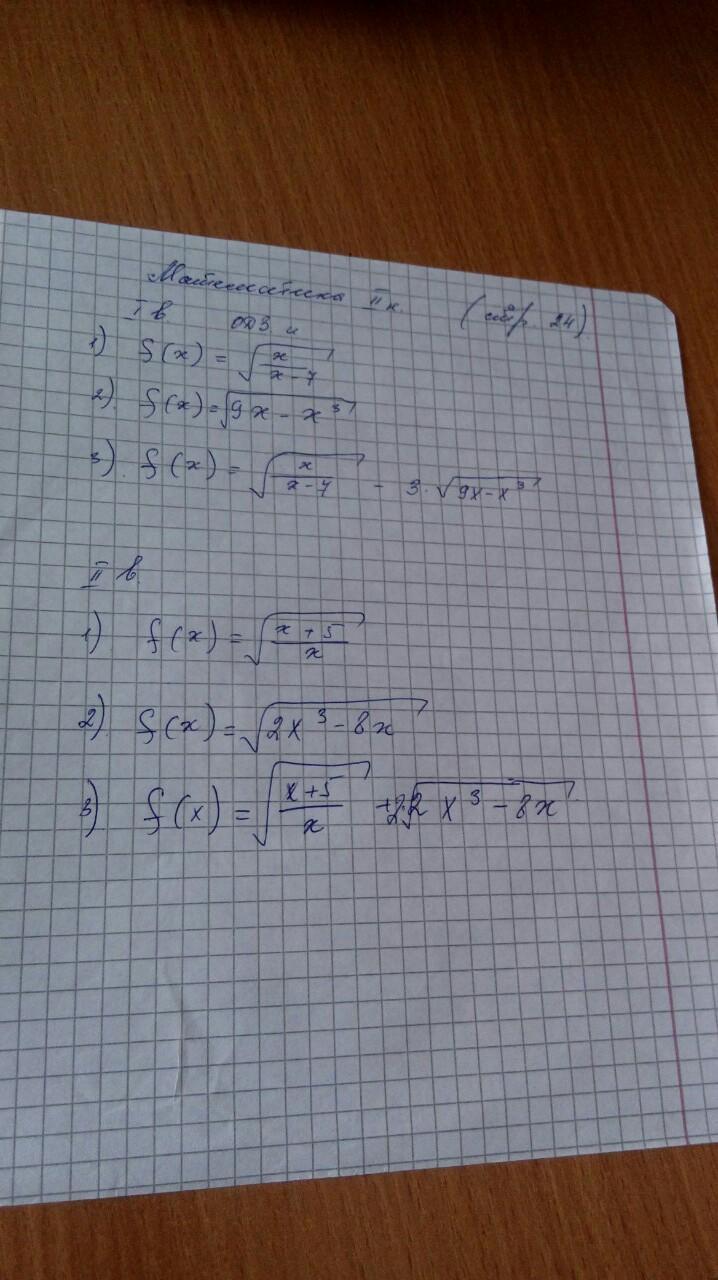 Математика II к. (стр. 24)
I в ОДЗ и
1) f(x) = √(x/(x-7))
2). f(x) = √(9x - x³)
3). f(x) = √(x/(x-7)) - 3·√(9x-x³)
II в.
1) f(x) = √((x+5)/x)
2) f(x) = √(2x³-8x)
3) f(x) = √((x+5)/x) +2·√(2x³-8x)